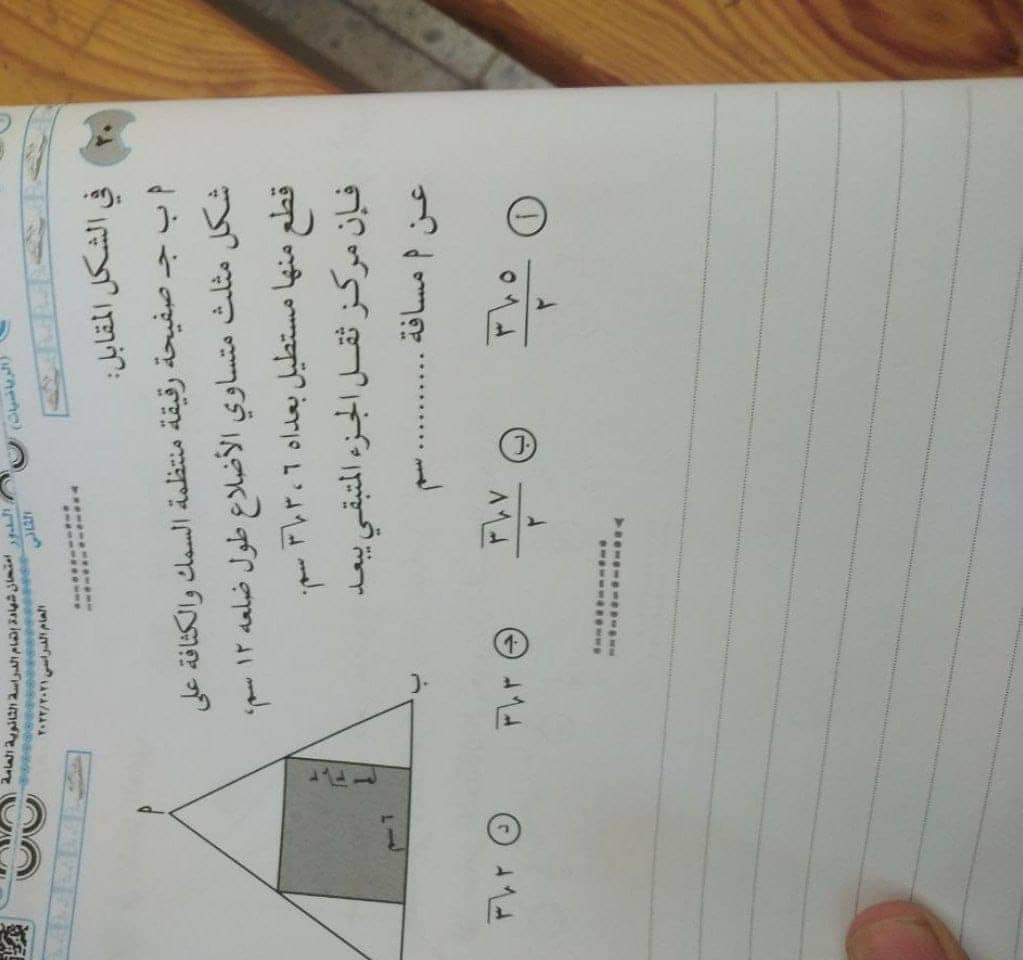 امتحان شهادة إتمام الدراسة الثانوية العامة
الدور الثاني
(الرياضيات)
العام الدراسي ٢٠٢٢/٢٠٢١
٢٠
في الشكل المقابل:
م ب جـ صفيحة رقيقة منتظمة السمك والكثافة على
شكل مثلث متساوي الأضلاع طول ضلعه ١٢ سم،
قطع منها مستطيل بعداه ٦ ، ٣√٣ سم.
فإن مركز ثقل الجزء المتبقي يبعد
عن م مسافة .......... سم
أ ٥√٣/٢
ب ٧√٣/٢
جـ ٣√٣
د ٢√٣
م
ب
٦ سم